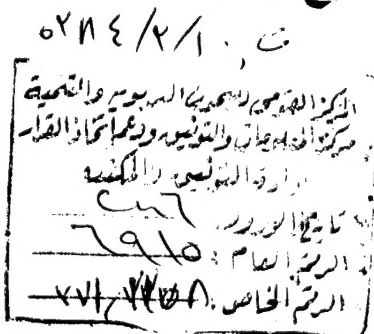 ت. ٥٢٨٤/٢/١
المركز القومى للبحوث التربوية والتنمية
مركز المعلومات والتوثيق ودعم اتخاذ القرار
إدارة التوثيق والمكتبة
تاريخ الورود
الرقم العام : ٦٩١٥
الرقم الخاص :